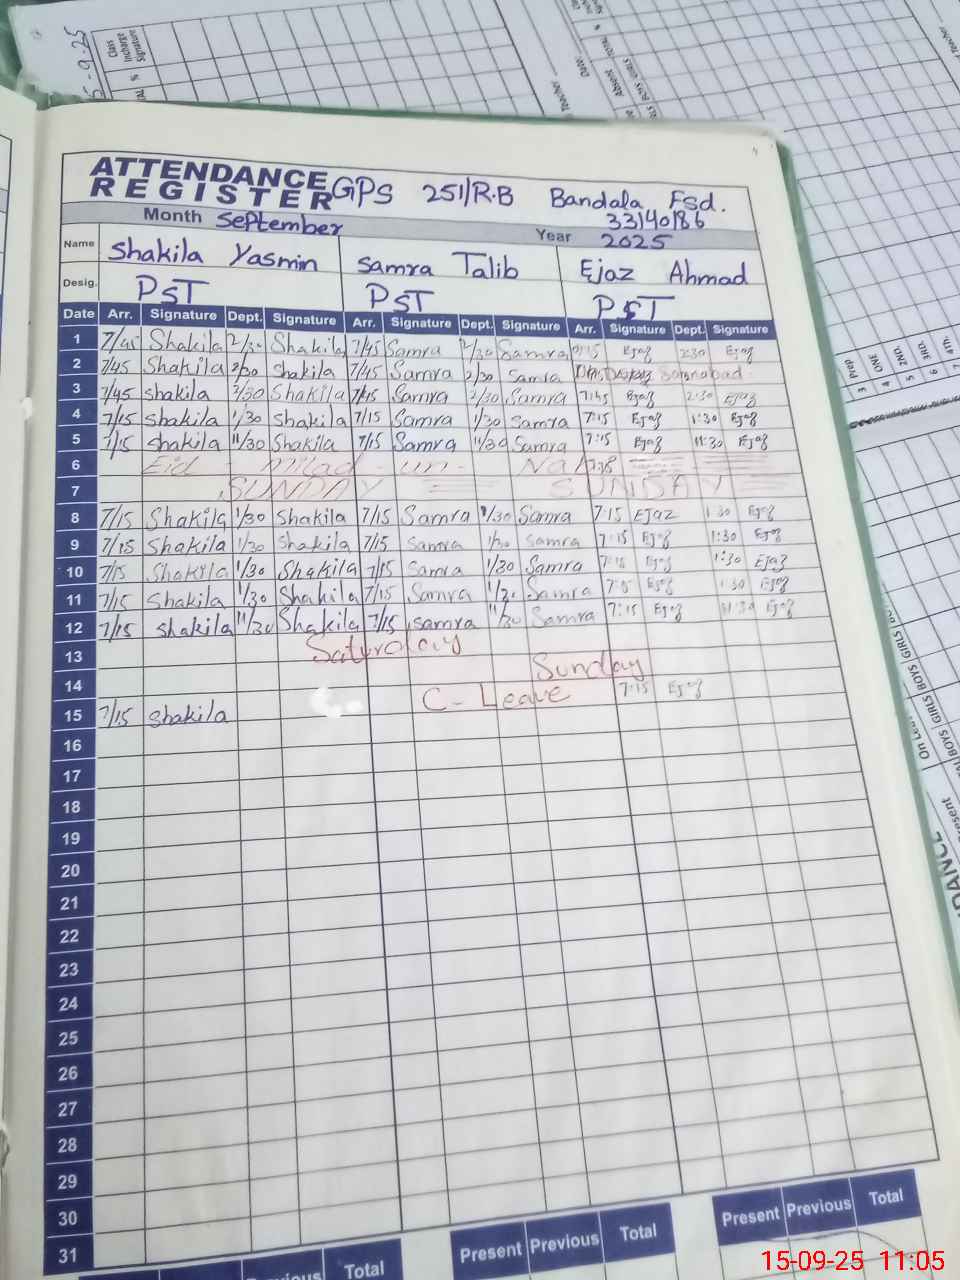 5-9-25
Class Incharge Signature
ATTENDANCE
REGISTER GPS 251/R.B Bandala Fsd.
33140186
Month September Year 2025
Name Shakila Yasmin Samra Talib Ejaz Ahmad
Desig. PST PST PST
Date Arr. Signature Dept. Signature Arr. Signature Dept. Signature Arr. Signature Dept. Signature
1 7/45 Shakila 2/30 Shakila 7/45 Samra 2/30 Samra Ejaz 2:30 Ejaz
2 7/45 Shakila 2/30 Shakila 7/45 Samra 2/30 Samra
3 7/45 Shakila 2/30 Shakila 7/45 Samra 2/30 Samra 7:45 Ejaz 2:30 Ejaz
4 7/15 Shakila 1/30 Shakila 7/15 Samra 1/30 Samra 7:15 Ejaz 1:30 Ejaz
5 7/15 Shakila 11/30 Shakila 7/15 Samra 11/30 Samra 7:15 Ejaz 11:30 Ejaz
6 Eid - milad - un - Nabi
7 SUNDAY SUNDAY
8 7/15 Shakila 1/30 Shakila 7/15 Samra 1/30 Samra 7:15 Ejaz 1:30 Ejaz
9 7/15 Shakila 1/30 Shakila 7/15 Samra 1/30 Samra 7:15 Ejaz 1:30 Ejaz
10 7/15 Shakila 1/30 Shakila 7/15 Samra 1/30 Samra 7:15 Ejaz 1:30 Ejaz
11 7/15 Shakila 1/30 Shakila 7/15 Samra 1/30 Samra Ejaz 1:30 Ejaz
12 7/15 Shakila 11/30 Shakila 7/15 Samra 11/30 Samra 7:15 Ejaz 11:30 Ejaz
13 Saturday
14 Sunday
15 7/15 Shakila C- Leave 7:15 Ejaz
16
17
18
19
20
21
22
23
24
25
26
27
28
29
30
31
Previous Total Present Previous Total Present Previous Total
15-09-25 11:05